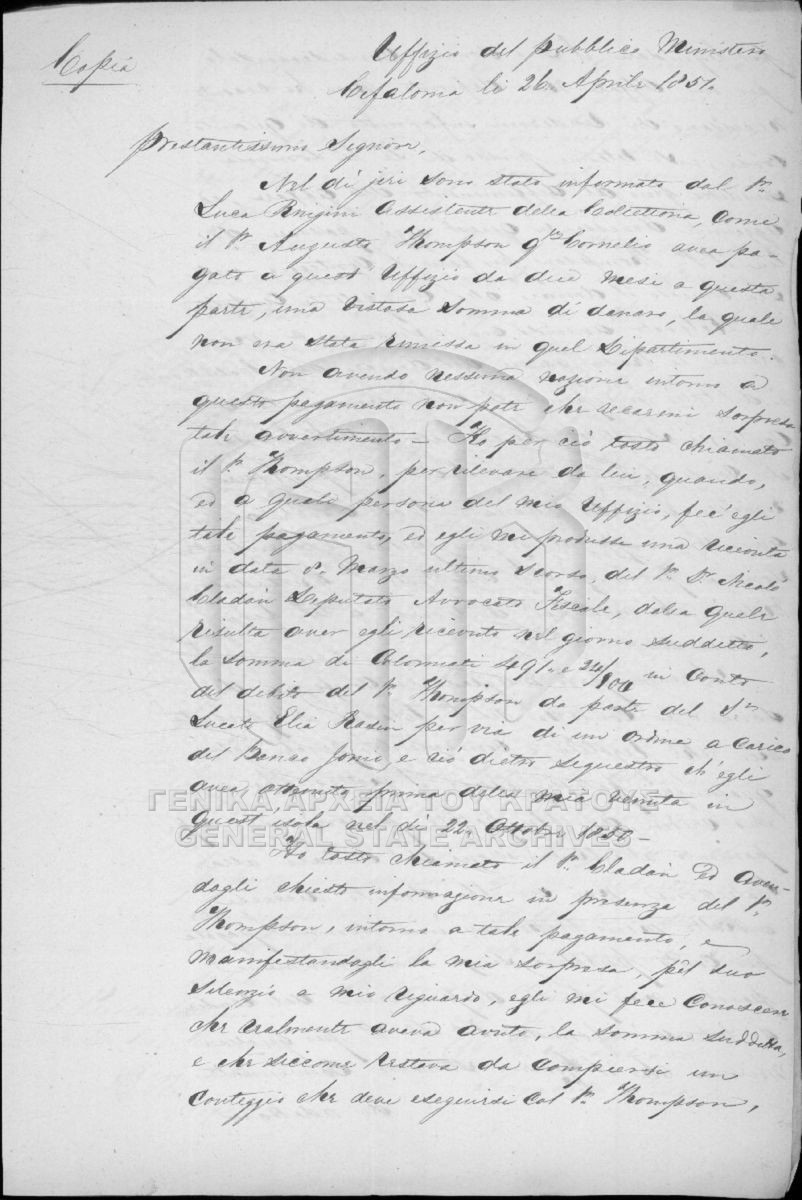 Copia
Uffizio del pubblico Ministero
Cefalonia li 26 Aprile 1851.
Prestantissimo Signore,
Nel dì jeri sono stato informato dal Sr.
Luca Assistente della Collettoria, come
il Sr. Augusto Thompson qm Cornelio avea pa-
gato a quest' Uffizio da dieci mesi a questa
parte, una vistosa somma di danaro, la quale
non era stata rimessa in quel Dipartimento.
Non avendo nessuna nozione intorno a
questo pagamento non potè che recarmi sorpresa
tale avvertimento – Ho per ciò tosto chiamato
il Sr. Thompson, per rilevare da lui, quando,
ed a quale persona del mio Uffizio, fece egli
tale pagamento, ed egli mi produsse una ricevuta
in data 8. Marzo ultimo scorso, del Sr. Dr. Nicolò
Cladàn Deputato Avvocato Fiscale, dalla quale
risulta aver egli ricevuto nel giorno suddetto,
la somma di Colonnati 491. e 24/100 in conto
del debito del Sr. Thompson da parte del Sr.
Lucato Elia per via di un ordine a carico
del Banco Jonio, e ciò dietro sequestro ch' egli
avea ottenuto prima della mia venuta in
quest' isola nel dì 22. Ottobre 1850 –
Ho tosto chiamato il Sr. Cladàn ed aven-
dogli chiesto informazione in presenza del Sr.
Thompson, intorno a tale pagamento, e
manifestandogli la mia sorpresa, pel suo
silenzio a mio riguardo, egli mi fece conoscere
che realmente aveva avuto, la somma suddetta,
e che siccome restava da compiersi un
conteggio che deve eseguirsi col Sr. Thompson,
ΓΕΝΙΚΑ ΑΡΧΕΙΑ ΤΟΥ ΚΡΑΤΟΥΣ
GENERAL STATE ARCHIVES